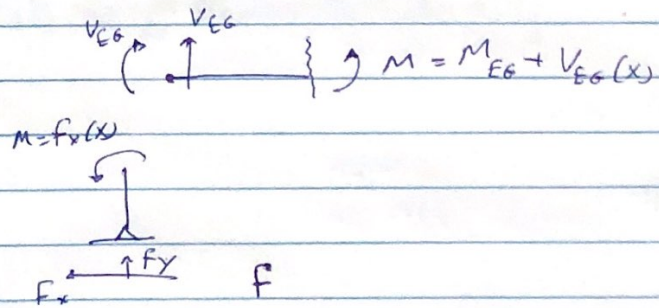 V_EG V_EG
M = M_EG + V_EG (x)
M = f_x (x)
fy
F_x f